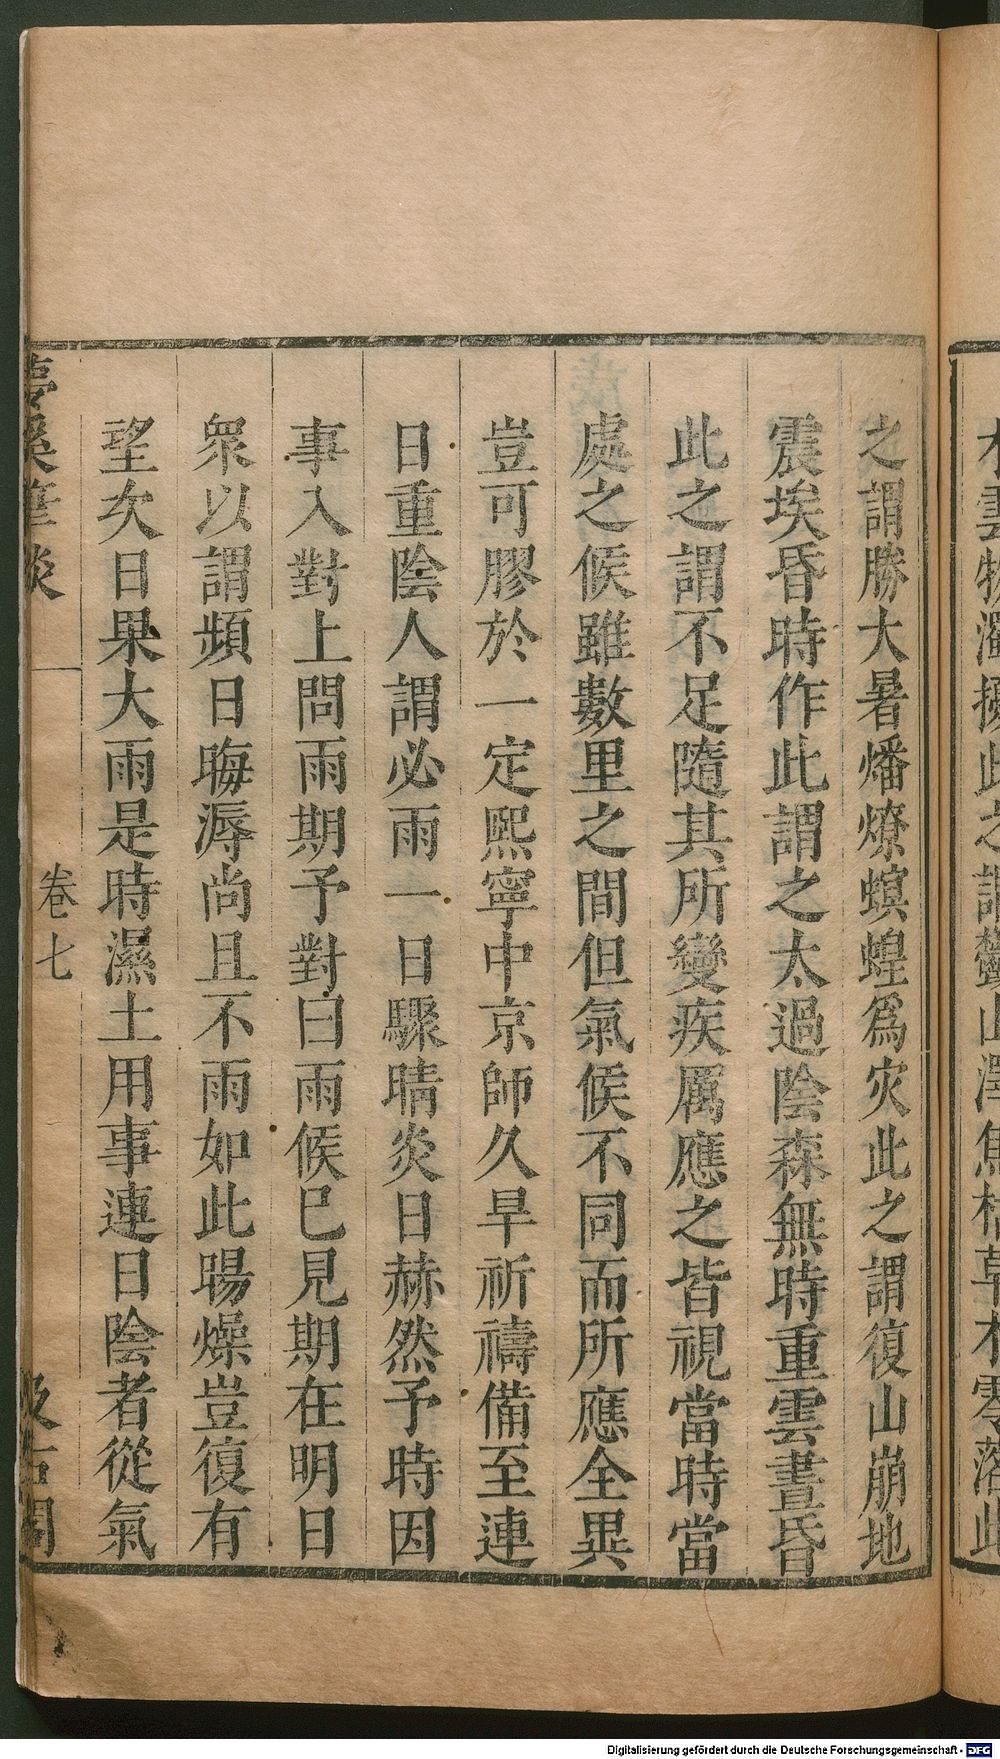 之謂勝大暑燔燎螟蝗爲灾此之謂復山崩地
震埃昏時作此謂之太過陰森無時重雲晝昏
此之謂不足隨其所變疾厲應之皆視當時當
處之候雖數里之間但氣候不同而所應全異
豈可膠於一定熙寧中京師久旱祈禱備至連
日重陰人謂必雨一日驟晴炎日赫然予時因
事入對上問雨期予對曰雨候已見期在明日
衆以謂頻日晦溽尚且不雨如此暘燥豈復有
望次日果大雨是時濕土用事連日陰者從氣
夢溪筆談
卷七
汲古閣
Digitalisierung gefördert durch die Deutsche Forschungsgemeinschaft - DFG